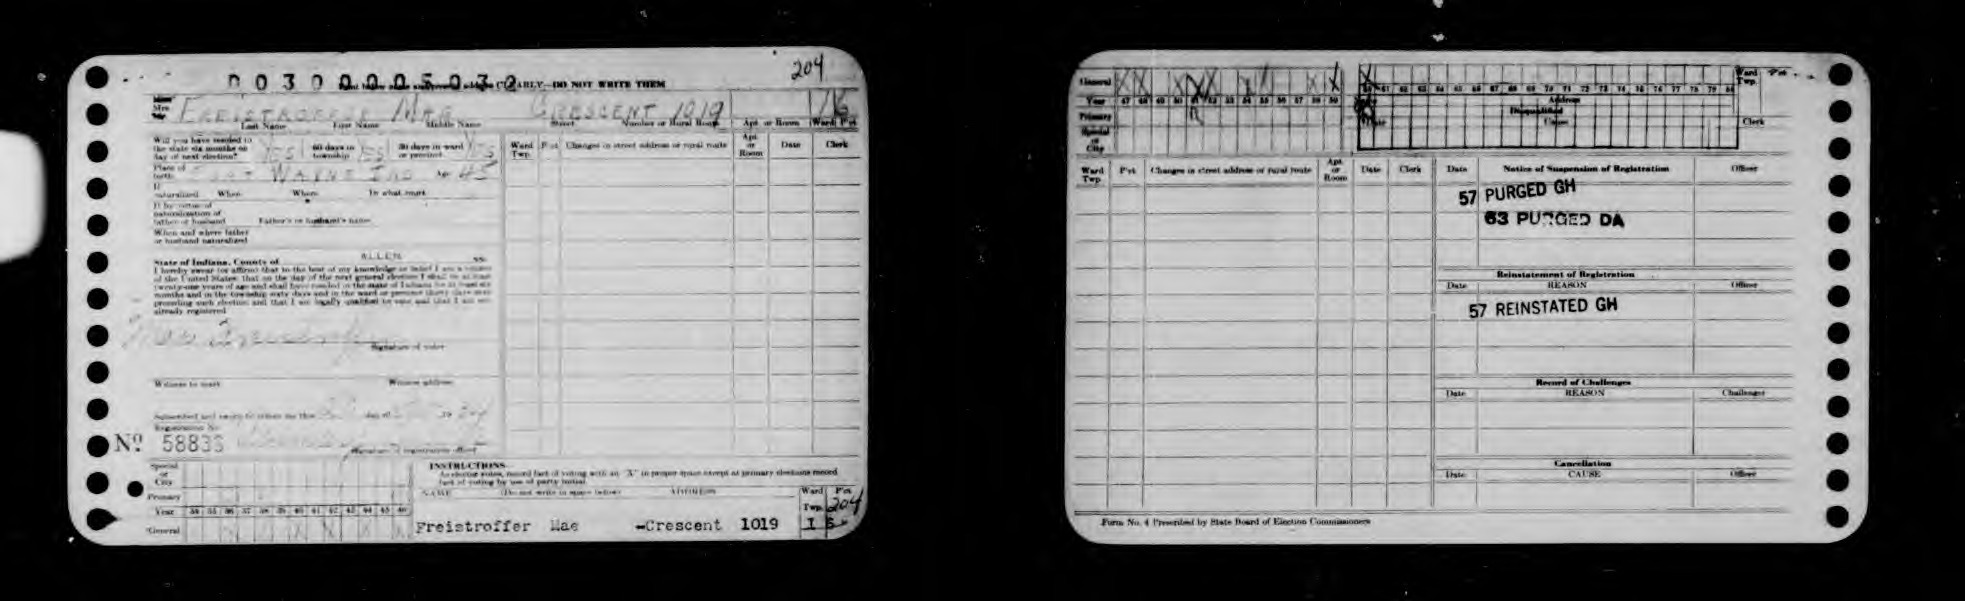 204
00300005032
CLEARLY—DO NOT WRITE THEM
Mrs FREISTROFFER MAE CRESCENT 1019
Last Name First Name Middle Name Street Number or Rural Route Apt. or Room Ward Pct
Will you have resided in
the state six months on YES 60 days in YES 30 days in ward YES
day of next election? township or precinct
Place of
birth FORT WAYNE IND Age 45
If
naturalized When Where In what court
If by virtue of
naturalization of
father or husband Father's or husband's name
When and where father
or husband naturalized
State of Indiana, County of ALLEN ss.
I hereby swear (or affirm) that to the best of my knowledge or belief I am a citizen
of the United States; that on the day of the next general election I shall be at least
twenty-one years of age and shall have resided in the state of Indiana for at least six
months and in the township sixty days and in the ward or precinct thirty days next
preceding such election and that I am legally qualified to vote and that I am not
already registered
Mae
Signature of voter
Witness to mark Witness address
Subscribed and sworn to before me this day of 19
Registration No.
No. 58833
Signature of registration officer
Ward Twp. Pct Changes in street address or rural route Apt. or Room Date Clerk
Special
or
City
Primary
Year 34 35 36 37 38 39 40 41 42 43 44 45 46
General X X X X
INSTRUCTIONS
As elector votes, record fact of voting with an "X" in proper space except at primary elections record
fact of voting by use of party initial.
NAME (Do not write in space below) ADDRESS Ward Twp. Pct
204
Freistroffer Mae -Crescent 1019
General X X X X X X X X
Year 47 48 49 50 51 52 53 54 55 56 57 58 59 60 61 62 63 64 65 66 67 68 69 70 71 72 73 74 75 76 77 78 79 80
Primary R
Special
or
City
Ward
Twp.
Address
Disqualified
Date Cause Clerk
Ward Twp. Pct Changes in street address or rural route Apt. or Room Date Clerk
Date Notice of Suspension of Registration Officer
57 PURGED GH
63 PURGED DA
Reinstatement of Registration
Date REASON Officer
57 REINSTATED GH
Record of Challenges
Date REASON Challenger
Cancellation
Date CAUSE Officer
Form No. 4 Prescribed by State Board of Election Commissioners